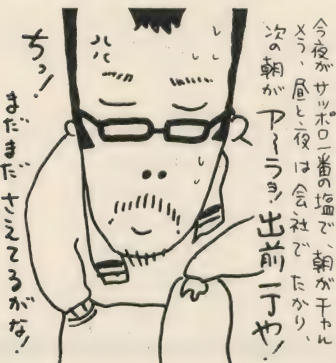 今夜がサッポロ一番の塩で、朝がチャルメラ、昼と夜は会社でたかり、
次の朝がア〜ラヨ!出前一丁や!
ちっ!
まだまださえてるがな!